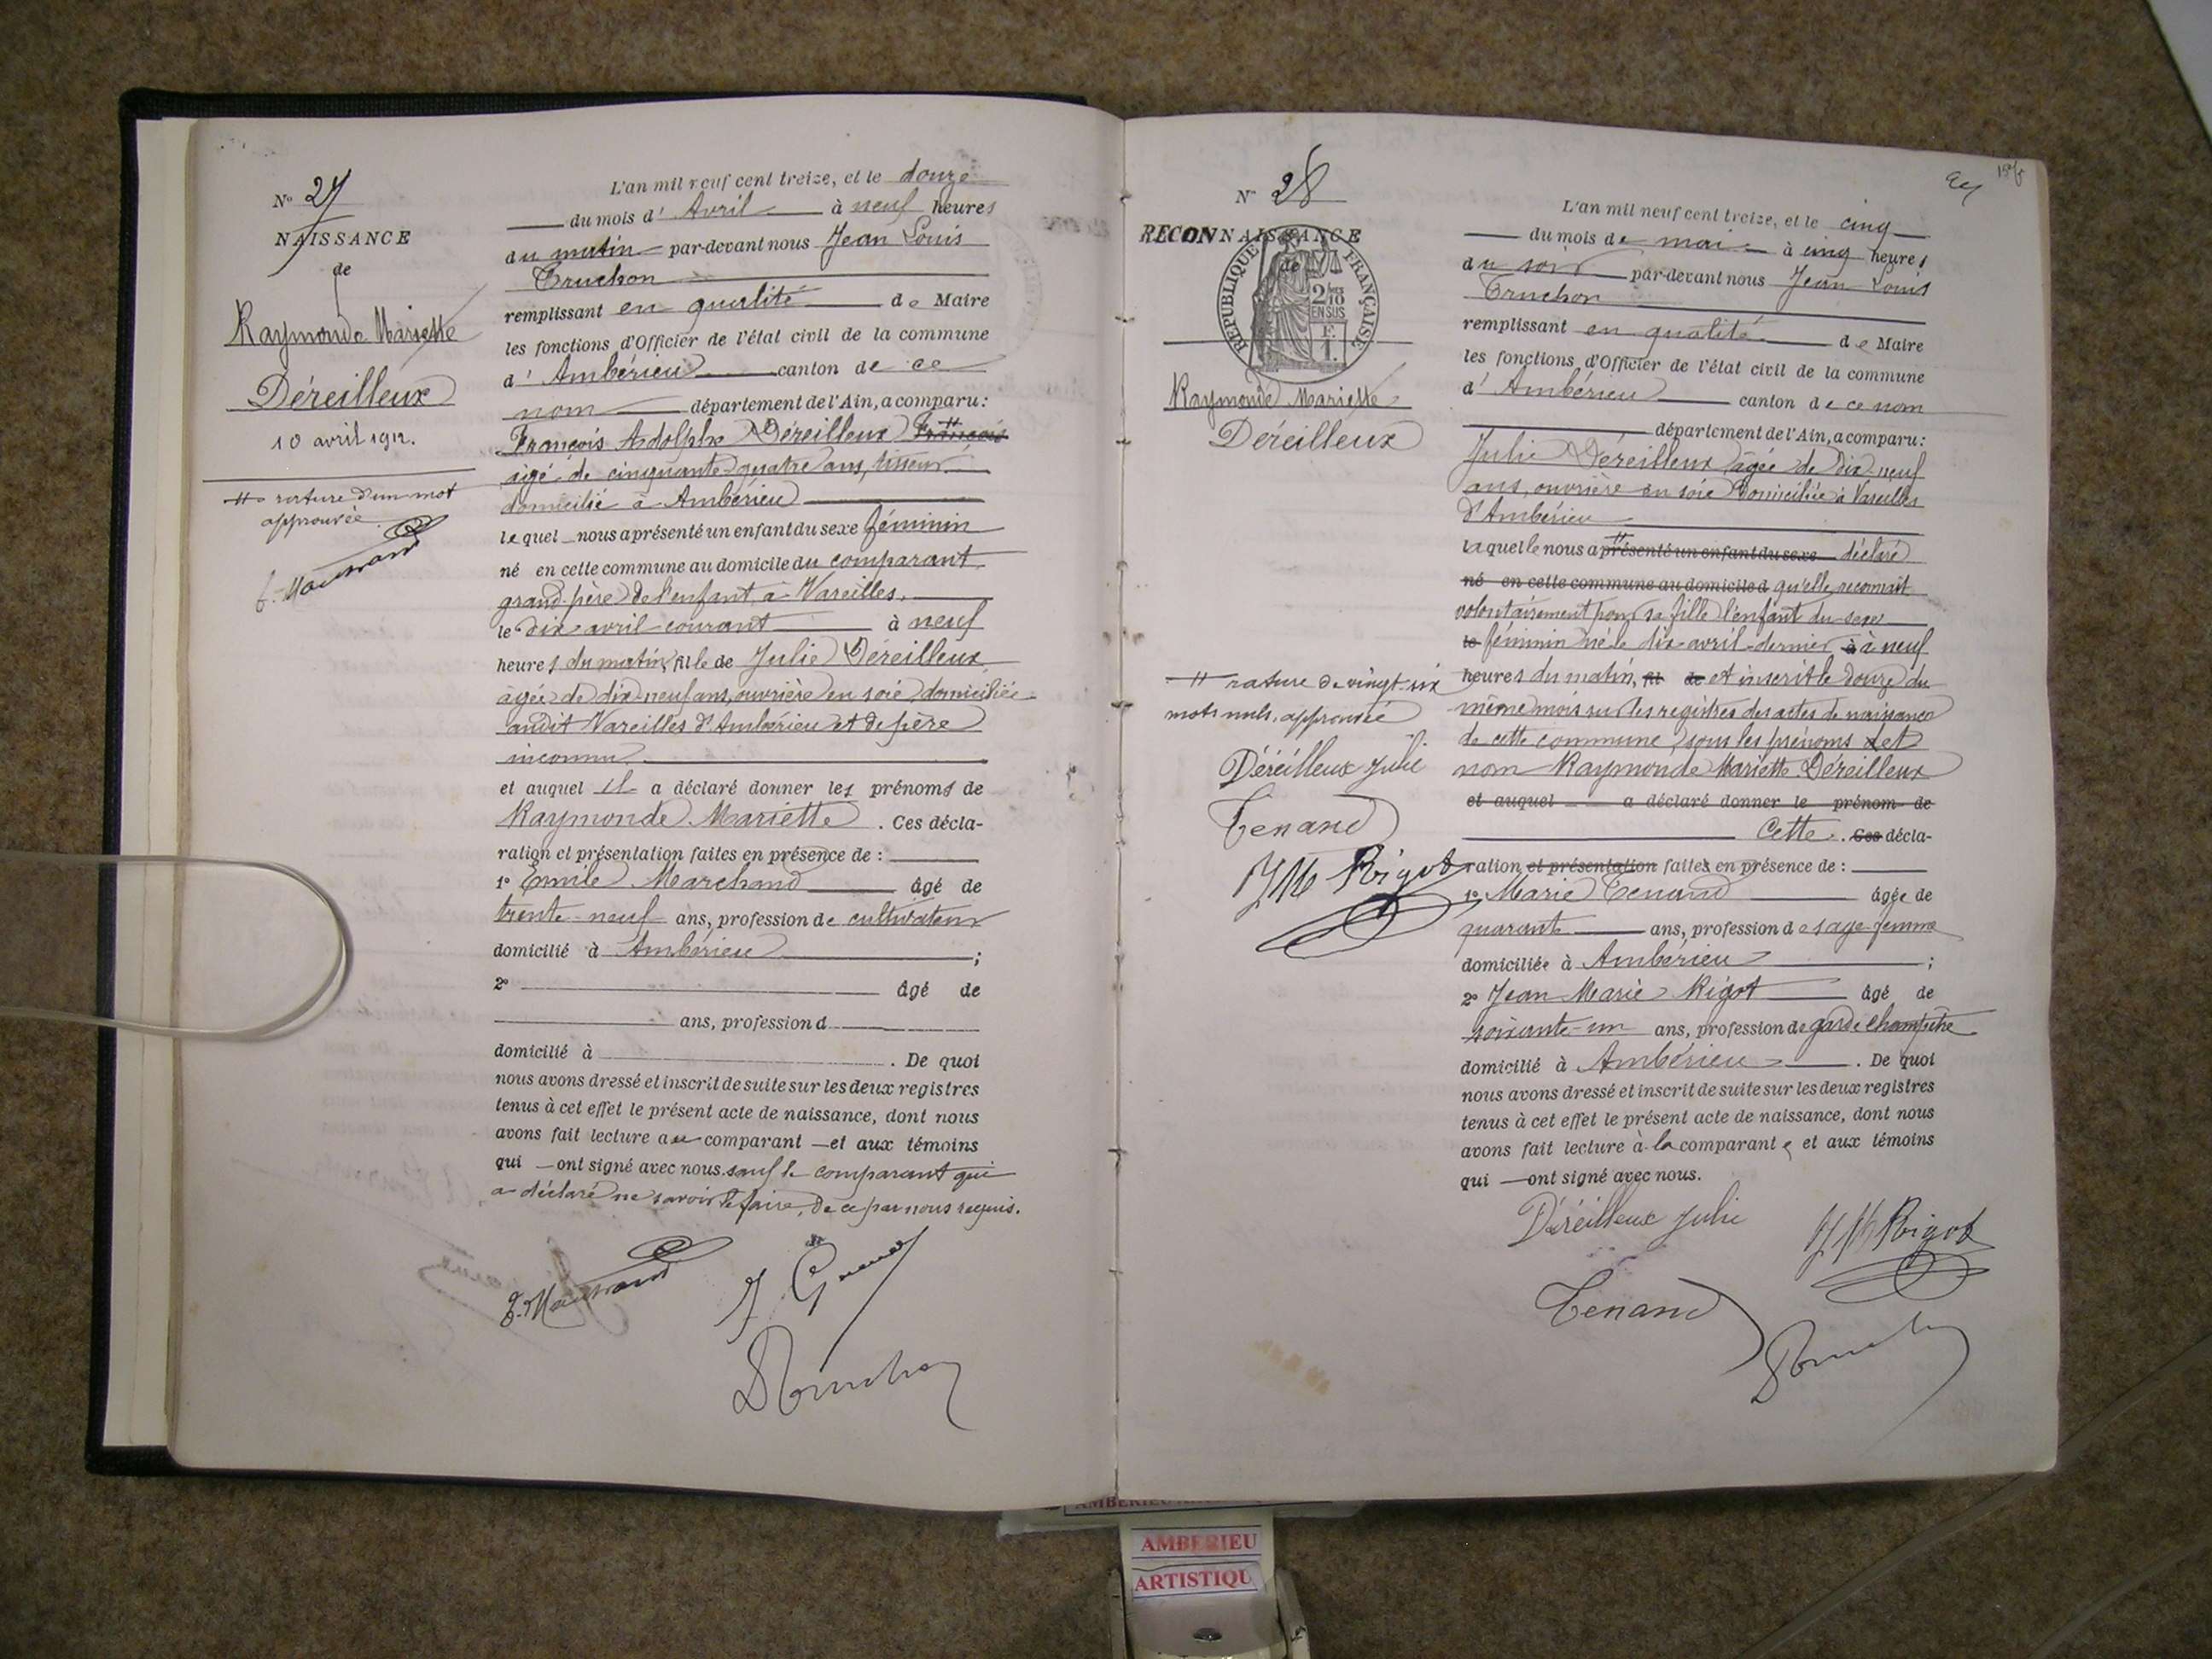 N° 27
NAISSANCE
de
Raymonde Mariette
Déreilleux
10 avril 1912.
# rature d'un mot
approuvée
L'an mil neuf cent treize, et le douze
du mois d'Avril à neuf heures
du matin par-devant nous Jean Louis
Truchon
remplissant en qualité de Maire
les fonctions d'Officier de l'état civil de la commune
d'Ambérieu canton de ce
nom département de l'Ain, a comparu:
François Adolphe Déreilleux François
âgé de cinquante quatre ans, tisseur
domicilié à Ambérieu
lequel nous a présenté un enfant du sexe féminin
né en cette commune au domicile du comparant
grand-père de l'enfant, à Vareilles,
le dix avril courant à neuf
heures du matin, fille de Julie Déreilleux
âgée de dix-neuf ans, ouvrière en soie, domiciliée
audit Vareilles d'Ambérieu et de père
inconnu
et auquel il a déclaré donner les prénoms de
Raymonde Mariette. Ces décla-
ration et présentation faites en présence de :
1° Emile Marchand âgé de
trente-neuf ans, profession de cultivateur
domicilié à Ambérieu ;
2° âgé de
ans, profession d
domicilié à . De quoi
nous avons dressé et inscrit de suite sur les deux registres
tenus à cet effet le présent acte de naissance, dont nous
avons fait lecture au comparant et aux témoins
qui ont signé avec nous sauf le comparant qui
a déclaré ne savoir le faire, de ce par nous requis.
Truchon
24
N° 28
RECONNAISSANCE
de
REPUBLIQUE FRANÇAISE
2/10
EN SUS
F.
1.
Raymonde Mariette
Déreilleux
# rature de vingt-six
mots nuls, approuvée
Déreilleux Julie
Tenand
JM Rigot
L'an mil neuf cent treize, et le cinq
du mois de mai à cinq heures
du soir par-devant nous Jean Louis
Truchon
remplissant en qualité de Maire
les fonctions d'Officier de l'état civil de la commune
d'Ambérieu canton de ce nom
département de l'Ain, a comparu:
Julie Déreilleux âgée de dix-neuf
ans, ouvrière en soie domiciliée à Vareilles
d'Ambérieu
laquelle nous a présenté un enfant du sexe déclaré
né en cette commune au domicile d qu'elle reconnait
volontairement pour sa fille l'enfant du sexe
le féminin né le dix avril dernier à à neuf
heures du matin, fil de et inscrit le douze du
même mois sur les registres des actes de naissance
de cette commune, sous les prénoms et
nom Raymonde Mariette Déreilleux
et auquel a déclaré donner le prénom de
Cette. Ces décla-
ration et présentation faites en présence de :
1° Marie Tenand âgée de
quarante ans, profession de sage-femme
domiciliée à Ambérieu ;
2° Jean Marie Rigot âgé de
soixante-un ans, profession de garde champêtre
domicilié à Ambérieu. De quoi
nous avons dressé et inscrit de suite sur les deux registres
tenus à cet effet le présent acte de naissance, dont nous
avons fait lecture à la comparante et aux témoins
qui ont signé avec nous.
Déreilleux Julie
JM Rigot
Tenand
Truchon
AMBERIEU
ARTISTIQU